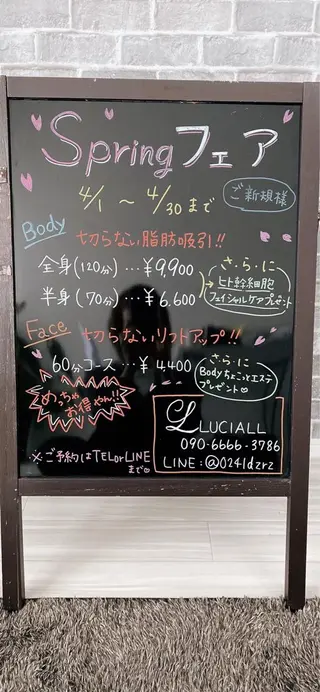 Springフェア
4/1 ～ 4/30 まで
ご新規様
Body
切らない脂肪吸引!!
全身(120分)…¥9,900
半身(70分)…¥6,600
さ・ら・に
ヒト幹細胞
フェイシャルケアプレゼント
Face
切らないリフトアップ!!
60分コース…¥4,400
さ・ら・に
Bodyちょこっとエステ
プレゼント
めっちゃ
お得やん!!
LLUCIALL
090-6666-3786
LINE:@0241dzrz
※ご予約はTELorLINE
まで